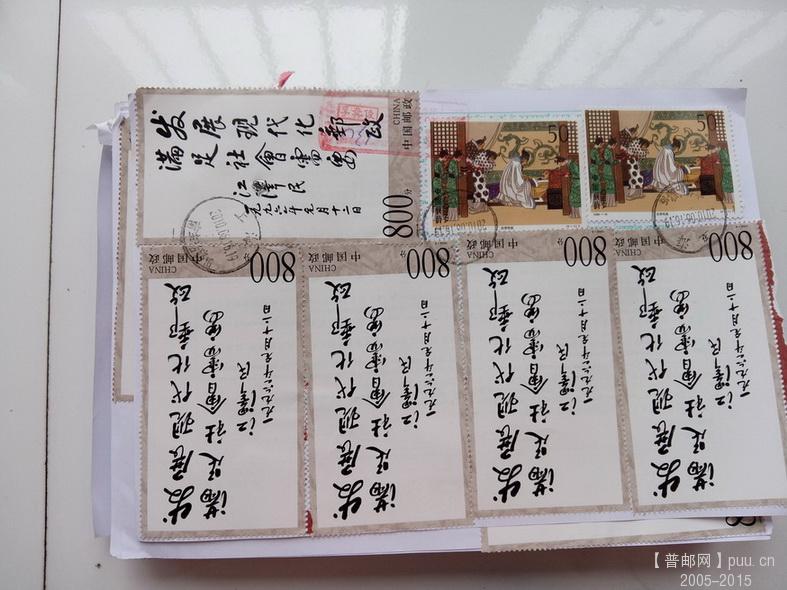 发展现代化郵政
满足社會需要
江澤民
一九九六年元月十二日
CHINA
中国邮政
800分
50
50
中国邮政
CHINA
800分
发展现代化郵政
满足社會需要
江澤民
一九九六年元月十二日
中国邮政
CHINA
800分
发展现代化郵政
满足社會需要
江澤民
一九九六年元月十二日
中国邮政
CHINA
800分
发展现代化郵政
满足社會需要
江澤民
一九九六年元月十二日
中国邮政
CHINA
800分
发展现代化郵政
满足社會需要
江澤民
一九九六年元月十二日
【普邮网】puu.cn
2005-2015